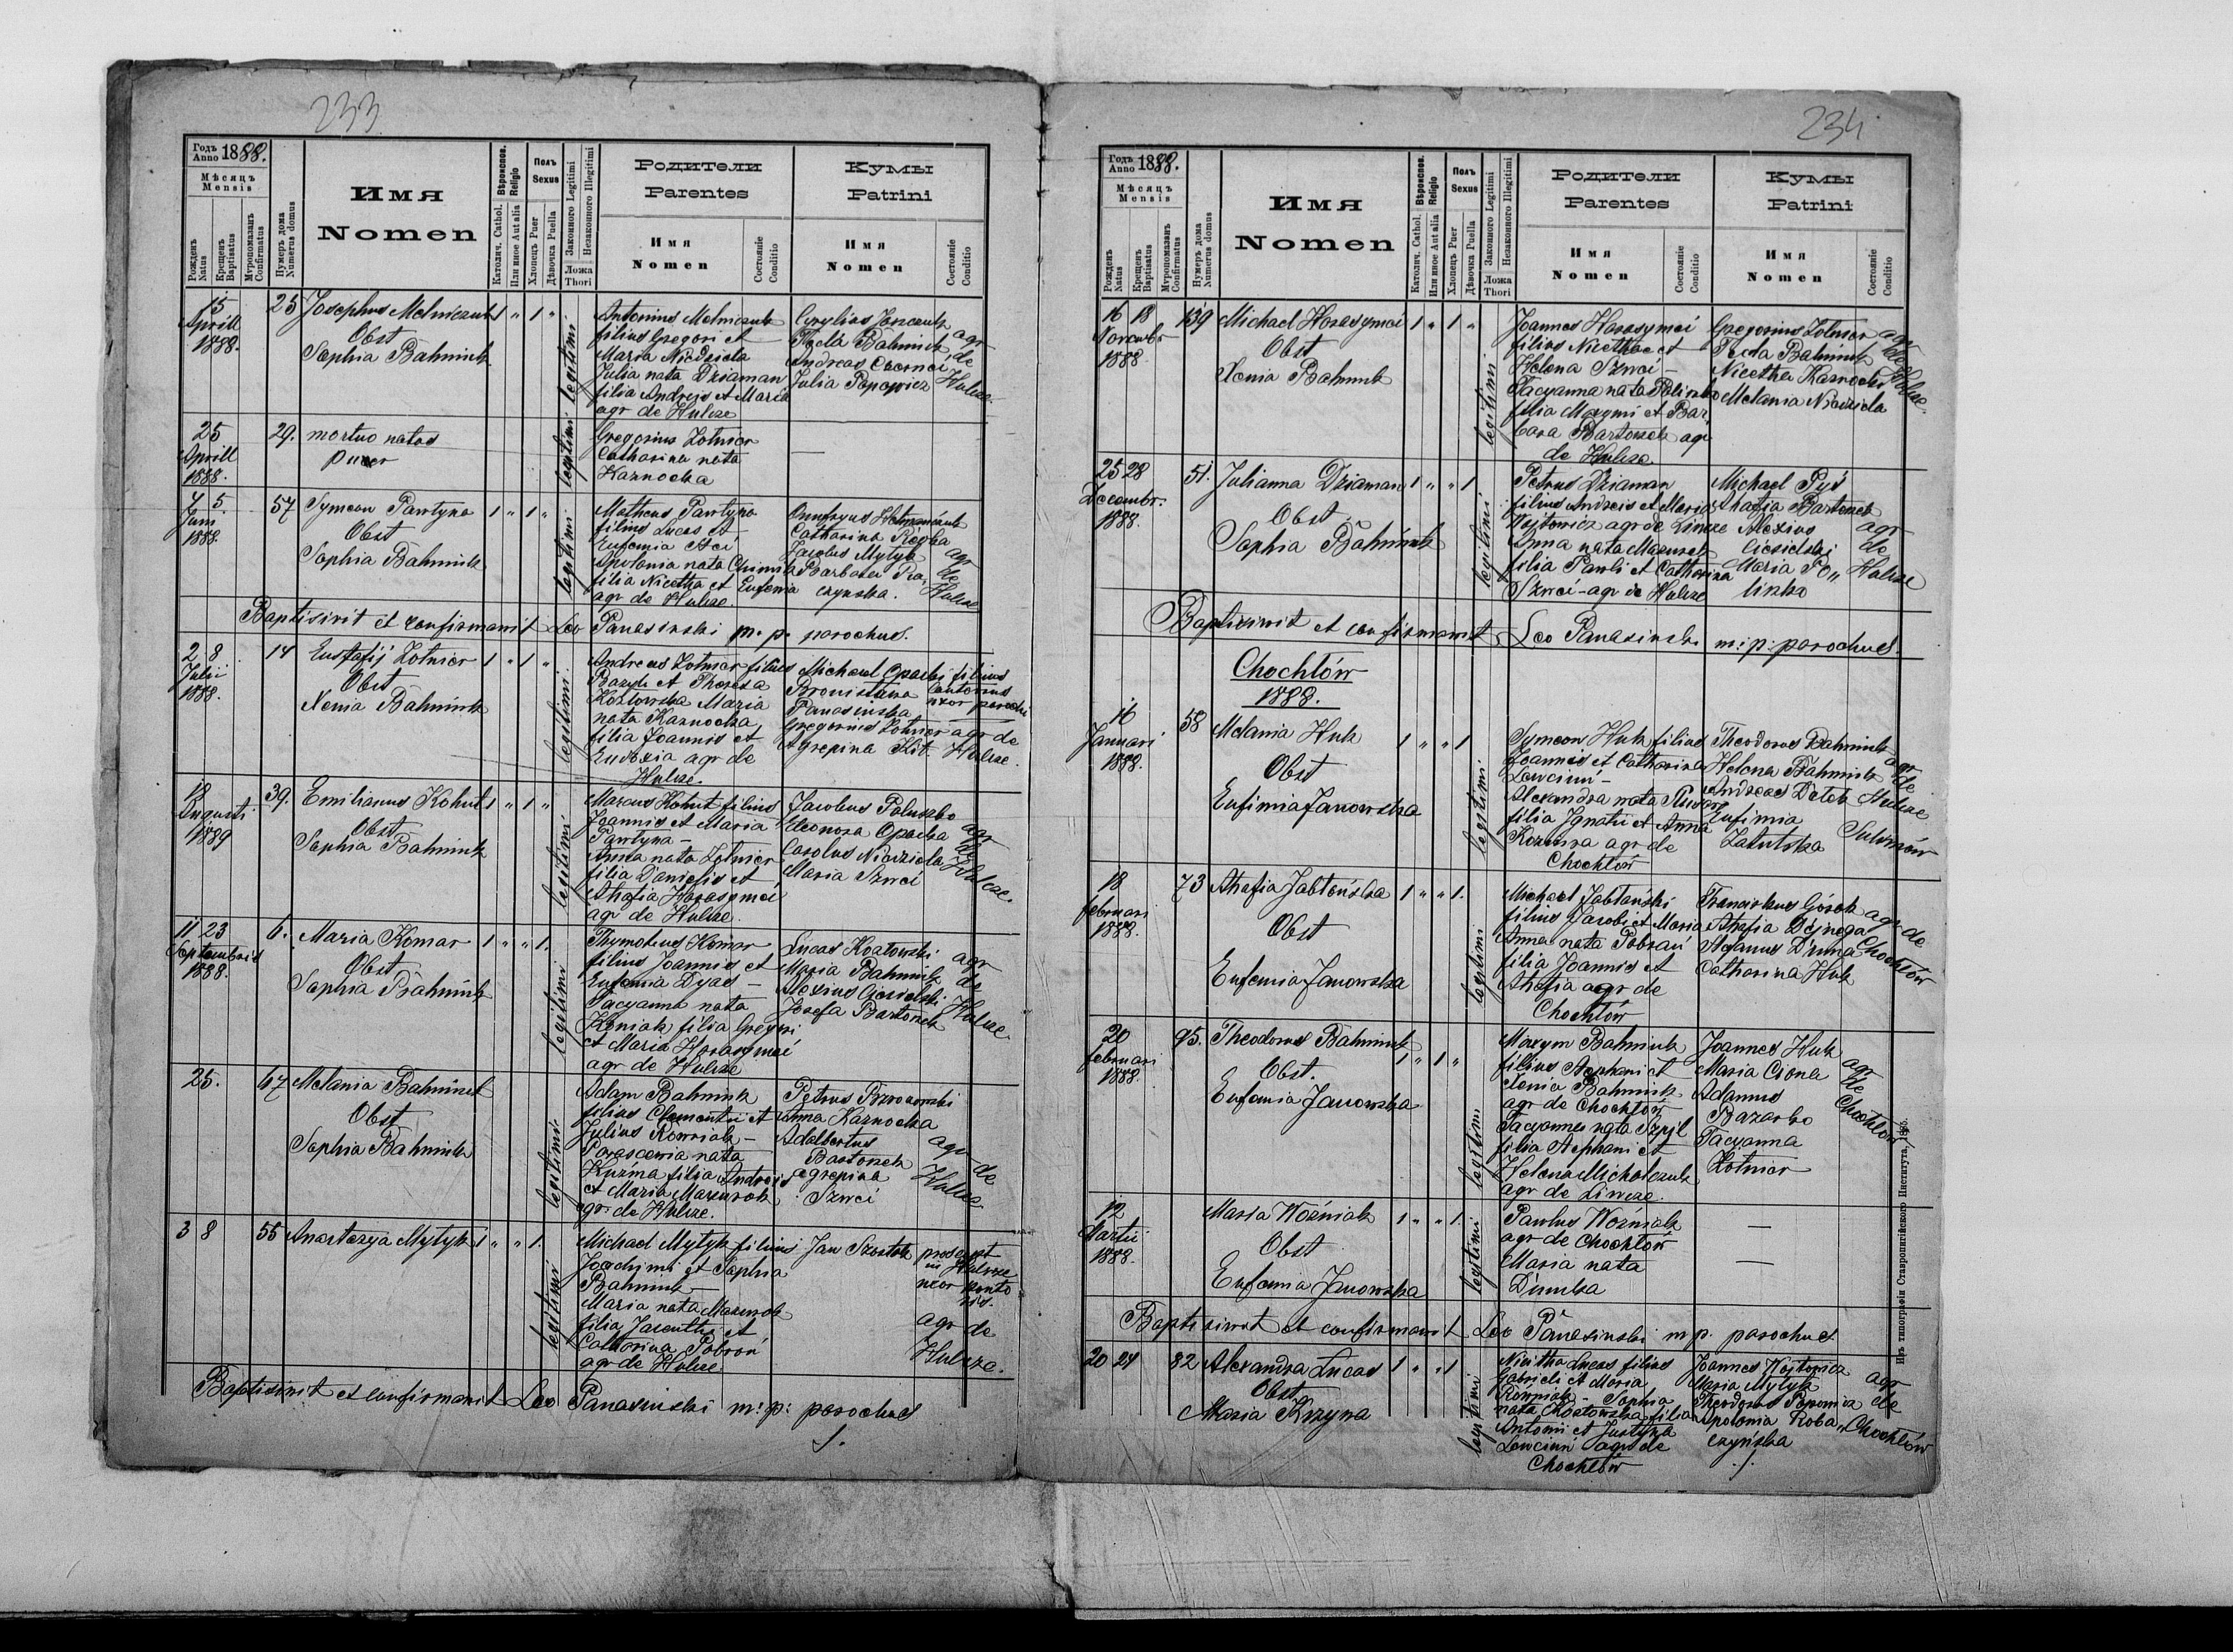 233
Годъ Anno 1888.
Мѣсяцъ Mensis
Рожденъ Natus
Крещенъ Baptisatus
Муропомазанъ Confirmatus
Нумеръ дома Numerus domus
Имя
Nomen
Вѣроиспов. Religio
Католич. Cathol.
Или иное Aut alia
Полъ Sexus
Хлопецъ Puer
Дѣвочка Puella
Законного Legitimi
Незаконного Illegitimi
Ложа Thori
Родители
Parentes
Имя
Nomen
Состояніе
Conditio
Кумы
Patrini
Имя
Nomen
Состояніе
Conditio
15 Aprill 1888.
25 Josephus Melniczuk 1 " 1 "
Obst
Sophia Bahniuk
legitimi
Antonius Melniczuk
filius Gregori et
Maria Niedziela
Julia nata Dziaman
filia Andreis et Maria
agr de Hulcze
Tecla Bahniuk
Julia Popowicz
agr de Hulcze
25 Aprill 1888.
29. mortuo natus
puer
legitimi
Gregorius Zotnier
Catharina nata
Kaznocka
4 5 Juni 1888.
57 Symeon Pawtyna 1 " 1 "
Obst
Sophia Bahniuk
legitimi
Matheus Pawtyna
filius Lucas et
Eufemia
Apolonia nata
filia Nicetha et Eufemia
agr de Hulcze.
Catharina
Jacobus Mytyk
Barbara
agr de Hulcze
Baptisivit et confirmavit Leo Panasinski m. p. parochus.
2 8 Julii 1888.
14 Eustafij Zotnier 1 " 1 "
Obst
Xenia Bahniuk
legitimi
Andreas Zotnier filius
Bazyli et Theresa
Kostowska Maria
nata Kaznocka
filia Joannis et
Eudoxia agr de
Hulcze.
Michael Opacki filius
Bronislawa
Panasinska uxor parochi
Gregorius Zotnier agr de
Agrepina Kit. Hulcze.
18 Augusti 1889
39. Emilianus Kohut 1 " 1 "
Obst
Sophia Bahniuk
legitimi
Marcus Kohut filius
Joannis et Maria
Pawtyna -
Anna nata Zotnier
filia Danielis et
Ahafia Harasymci
agr de Hulcze.
Jacobus Poluszko
Eleonora Opacka
Carolus Niedziela
Maria Szwci
agr de Hulcze.
11 23 Septembris 1888.
6. Maria Komar 1 " " 1.
Obst
Sophia Bahniuk
legitimi
Thymoteus Komar
filius Joannis et
Eufemia Dyas -
Tacyanna nata
Koniak filia Gregori
et Maria Harasymci
agr de Hulcze
Lucas Koztowski
Maria Bahniuk
Alexius Ciesielski
Josefa Bartoszek
agr de Hulcze
25.
67 Melania Bahniuk
Obst
Sophia Bahniuk
legitimi.
Adam Bahniuk
filius Clementii et
Julius Rowniak -
Parascevia nata
Kuzma filia Andreis
et Maria Mazurok
agr de Hulcze.
Petrus Brzozowski
Anna Kaznocka
Adalbertus
Bartoszek
agrepina
Szwci
agr de Hulcze
3 8
55 Anastazya Mytyk 1 " " 1.
legitimi
Michael Mytyk filius
Joachimi et Sophia
Bahniuk -
Maria nata Mazurok
filia Jacenthi et
Catharina Pobran
agr de Hulcze
Jan Szostak
in Hulcze
uxor
agr de
Hulcze.
Baptisivit et confirmavit Leo Panasinski m: p: parochus
234
Годъ Anno 1888.
Мѣсяцъ Mensis
Рожденъ Natus
Крещенъ Baptisatus
Муропомазанъ Confirmatus
Нумеръ дома Numerus domus
Имя
Nomen
Вѣроиспов. Religio
Католич. Cathol.
Или иное Aut alia
Полъ Sexus
Хлопецъ Puer
Дѣвочка Puella
Законного Legitimi
Незаконного Illegitimi
Ложа Thori
Родители
Parentes
Имя
Nomen
Состояніе
Conditio
Кумы
Patrini
Имя
Nomen
Состояніе
Conditio
16 18 Novembr 1888
139 Michael Harasymci 1 " 1 "
Obst
Xenia Bahniuk
legitimi
Joannes Harasymci
filius Nicethae et
Helena Szwci -
Tacyanna nata Polinko
filia Maxymi et Bar
bara Bartoszek agr
de Hulcze
Gregorius Zotnier
Tecla Bahniuk
Nicetha Kaznocki
Melania Niedziela
agr de Hulcze.
25 28 Decembr. 1888.
51. Julianna Dziaman 1 " " 1
Obst.
Sophia Bahniuk
legitimi
Petrus Dziaman
filius Andreis et Maria
Wojtowicz agr de Liwcze
Anna nata Mazurok
filia Pauli et Catharina
Szwci - agr de Hulcze
Michael Pys
Ahafia Bartoszek
Alexius
Ciesielski
Maria Po,,
linko
agr de Hulcze
Baptisivit et confirmavit Leo Panasinski m: p: parochus.
Chochłów
1888.
16 Januari 1888.
58 Melania Huk 1 " " 1
Obst
Eufimia Janowska
legitimi
Symeon Huk filius
Joannis et Catharina
Lewciun -
Alexandra nata
filia Ignatii et Anna
agr de
Chochłów
Theodorus Bahniuk
Helena Bahniuk
Andreas Datek
Eufimia
Załutska
agr de Hulcze
Sulimów
18 februari 1888.
73 Ahafia Jabłońska 1 " " 1.
Obst
Eufemia Janowska
legitimi
Michael Jabłoński
filius Jacobi et Maria
Anna nata Pobran
filia Joannis et
Ahafia agr de
Chochłów
Franciskus Górok
Ahafia Dejnega
Adamus Duma
Catharina Huk
agr de Chochłów
20 februari 1888.
95. Theodorus Bahniuk 1 " 1 "
Obst.
Eufemia Janowska
legitimi
Maxym Bahniuk
filius Stephani et
Xenia Bahniuk
agr de Chochłów
Tacyanna nata Szpil
filia Stephani et
Helena Michalczuk
agr de Liwcze.
Joannes Huk
Maria Ciona
Adamus
Bazarko
Tacyanna
Zotnier
agr de Chochłów
12 Martii 1888.
Maria Woźniak 1 " " 1.
Obst
Eufemia Janowska
legitimi
Paulus Woźniak
agr de Chochłów
Maria nata
Dumka
Baptisivit et confirmavit Leo Panasinski m p. parochus
20 24
82 Alexandra Lucas 1 " " 1
Obst
Maria Krzyna
legitimi
Nicitha Lucas filius
Gabrieli et Maria
Rowniak - Sophia
nata Koztowska filia
Antonii et Justyna
Lewciun agr de
Chochłów
Joannes Wojtowicz
Maria Mytyk
Theodorus Popowicz
Apolonia Roba,,
czyńska
agr de Chochłów
Изъ типографіи Ставропигійского Института, 1886.